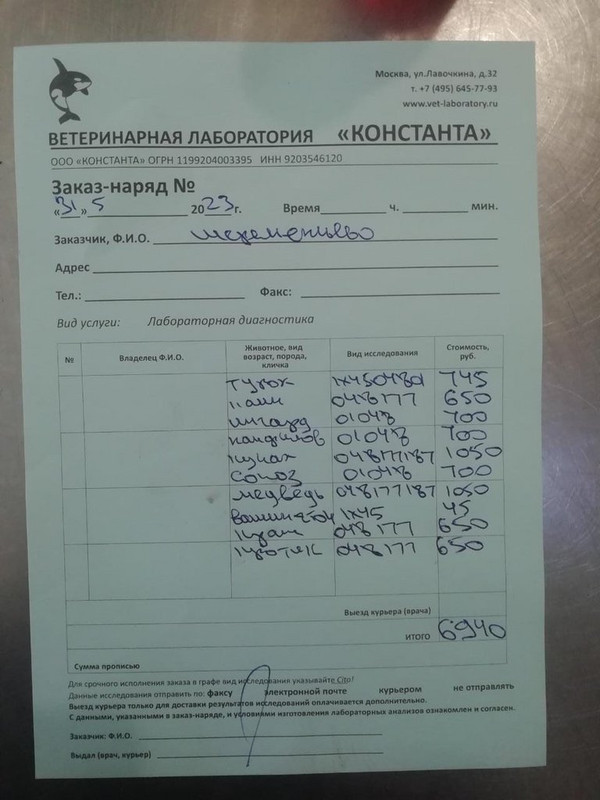 Москва, ул.Лавочкина, д.32
т. +7 (495) 645-77-93
www.vet-laboratory.ru
ВЕТЕРИНАРНАЯ ЛАБОРАТОРИЯ «КОНСТАНТА»
ООО «КОНСТАНТА» ОГРН 1199204003395 ИНН 9203546120
Заказ-наряд №
«31» 5 2023г. Время ч. мин.
Заказчик, Ф.И.О.
Адрес
Тел.: Факс:
Вид услуги: Лабораторная диагностика
№ Владелец Ф.И.О. Животное, вид возраст, порода, кличка Вид исследования Стоимость, руб.
745
048177 650
01048 700
панфилов 01048 700
048177187 1050
союз 01048 700
медведь 048177187 1050
1х45 45
048177 650
048177 650
Выезд курьера (врача)
ИТОГО 6940
Сумма прописью
Для срочного исполнения заказа в графе вид исследования указывайте Cito!
Данные исследования отправить по: факсу электронной почте курьером не отправлять
Выезд курьера только для доставки результатов исследований оплачивается дополнительно.
С данными, указанными в заказ-наряде, и условиями изготовления лабораторных анализов ознакомлен и согласен.
Заказчик: Ф.И.О.
Выдал (врач, курьер)